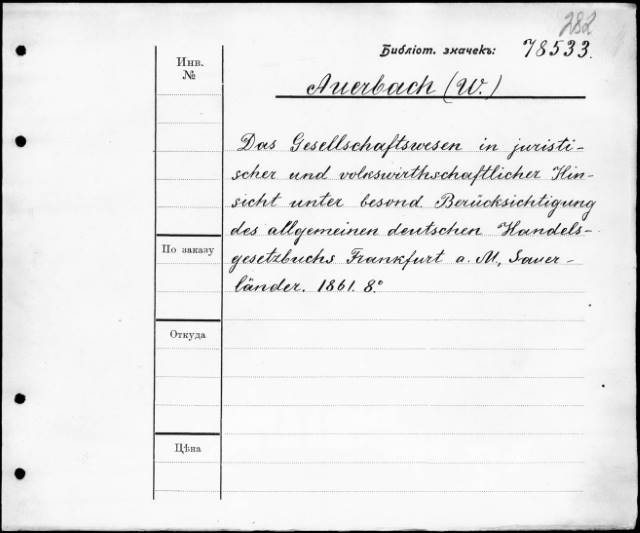 282
Библіот. значекъ: 78533.
Инв.
№
Auerbach (W.)
Das Gesellschaftswesen in juristi-
scher und volkswirthschaftlicher Hin-
sicht unter besond. Berücksichtigung
des allgemeinen deutschen Handels-
gesetzbuchs Frankfurt a. M., Sauer-
länder. 1861. 8.°
По заказу
Откуда
Цѣна